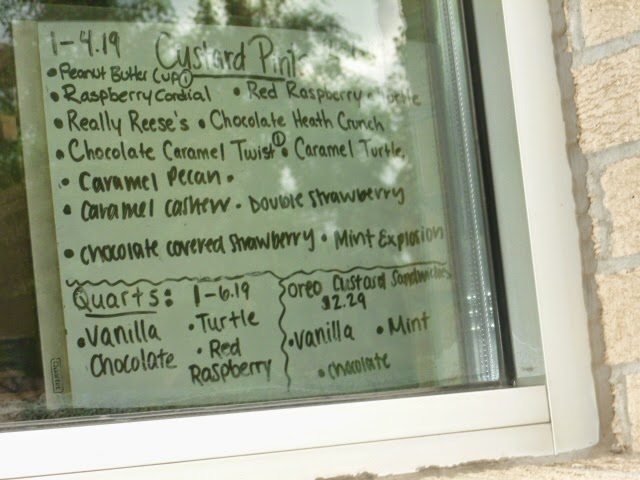 1-4.19 Custard Pints
• Peanut Butter Cup ①
• Raspberry Cordial • Red Raspberry • Turtle
• Really Reese's • Chocolate Heath Crunch
• Chocolate Caramel Twist ① • Caramel Turtle
• Caramel Pecan •
• Caramel cashew • Double Strawberry
• chocolate covered strawberry • Mint Explosion
Quarts: 1-6.19
• Vanilla • Turtle
Chocolate • Red Raspberry
oreo Custard Sandwiches
$2.29
• Vanilla • Mint
• chocolate